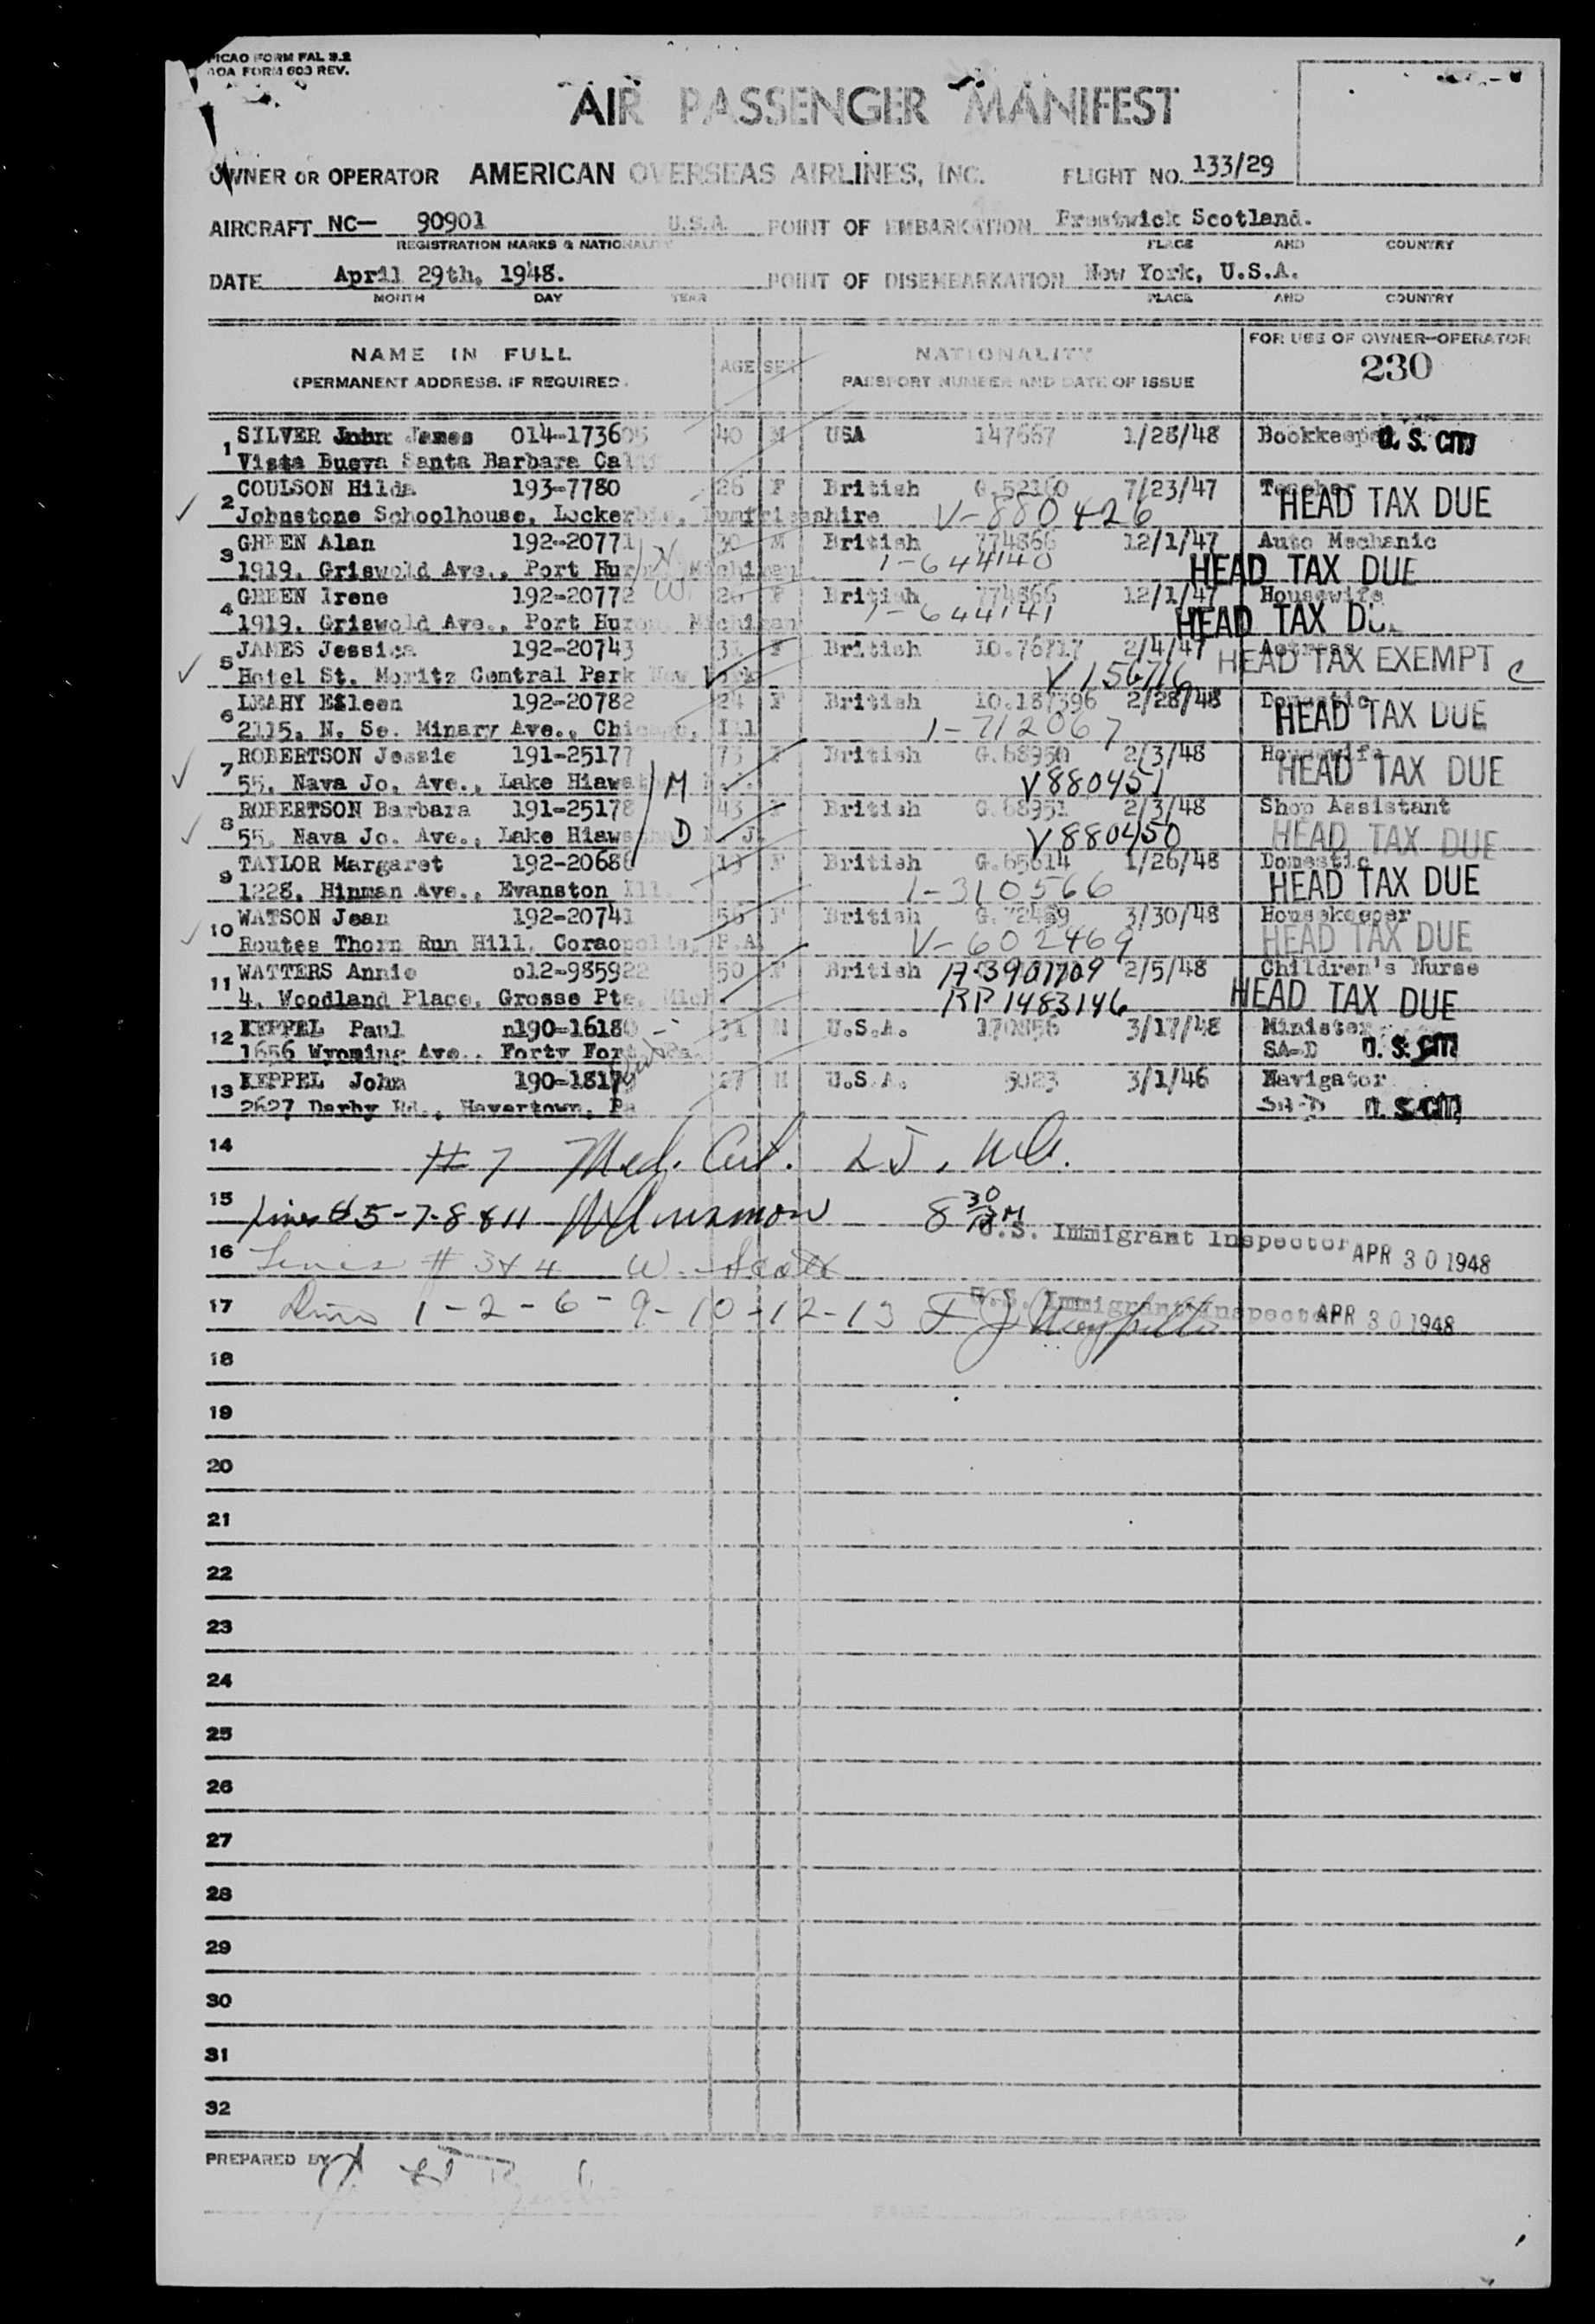 PICAO FORM FAL 3.2
AOA FORM 603 REV.
AIR PASSENGER MANIFEST
OWNER OR OPERATOR AMERICAN OVERSEAS AIRLINES, INC. FLIGHT NO. 133/29
AIRCRAFT NC— 90901 U.S.A. POINT OF EMBARKATION Prestwick Scotland.
REGISTRATION MARKS & NATIONALITY PLACE AND COUNTRY
DATE April 29th, 1948. POINT OF DISEMBARKATION New York, U.S.A.
MONTH DAY YEAR PLACE AND COUNTRY
NAME IN FULL AGE SEX NATIONALITY FOR USE OF OWNER-OPERATOR
(PERMANENT ADDRESS, IF REQUIRED. PASSPORT NUMBER AND DATE OF ISSUE 230
1 SILVER John James 014-173605 40 M USA 147667 1/28/48 Bookkeeper U.S. CIT
Vista Bueva Santa Barbara Calif
2 COULSON Hilda 193-7780 26 F British G.52160 7/23/47 Teacher HEAD TAX DUE
Johnstone Schoolhouse, Lockerbie, Dumfriesshire V-880426
3 GREEN Alan 192-20771 30 M British 774866 12/1/47 Auto Mechanic
1919, Griswold Ave., Port Huron, Michigan 1-644140 HEAD TAX DUE
4 GREEN Irene 192-20772 W 26 F British 774866 12/1/47 Housewife
1919, Griswold Ave., Port Huron, Michigan 1-644141 HEAD TAX DUE
5 JAMES Jessica 192-20743 31 F British 10.76717 2/4/47 Actress HEAD TAX EXEMPT
Hotel St. Moritz Central Park New York V156716
6 LEAHY Eileen 192-20782 24 F British 10.187396 2/28/48 Domestic HEAD TAX DUE
2115, N. Se. Minary Ave., Chicago, Ill 1-712067
7 ROBERTSON Jessie 191-25177 73 F British G.68950 2/3/48 Housewife HEAD TAX DUE
55, Nava Jo, Ave., Lake Hiawatha N.J. M V880451
8 ROBERTSON Barbara 191-25178 43 F British G.68951 2/3/48 Shop Assistant
55, Nava Jo. Ave., Lake Hiawatha N.J. D V880450 HEAD TAX DUE
9 TAYLOR Margaret 192-20686 19 F British G.65614 1/26/48 Domestic
1228, Hinman Ave., Evanston Ill. 1-310566 HEAD TAX DUE
10 WATSON Jean 192-20741 56 F British G.72489 3/30/48 Housekeeper
Routes Thorn Run Hill, Coraopolis, P.A. V-602469 HEAD TAX DUE
11 WATTERS Annie o12-985922 50 F British A-3901709 2/5/48 Children's Nurse
4, Woodland Place, Grosse Pte, Mich. RP 1483146 HEAD TAX DUE
12 KEPPEL Paul n190-16180 31 M U.S.A. 170856 3/17/48 Minister
1656 Wyoming Ave., Forty Fort, Pa. SA-D U.S. CIT
13 KEPPEL John 190-18179 27 M U.S.A. 5023 3/1/46 Navigator
2627 Darby Rd., Havertown, Pa SA-D U.S. CIT
14 # 7 Med. Cert.
15 Lines # 5-7-8 & 11 8 30
U.S. Immigrant Inspector APR 30 1948
16 Lines # 3 & 4 W. Scott
17 Lines 1-2-6-9-10-12-13 U.S. Immigrant Inspector APR 30 1948
18
19
20
21
22
23
24
25
26
27
28
29
30
31
32
PREPARED BY
PAGE OF PAGES